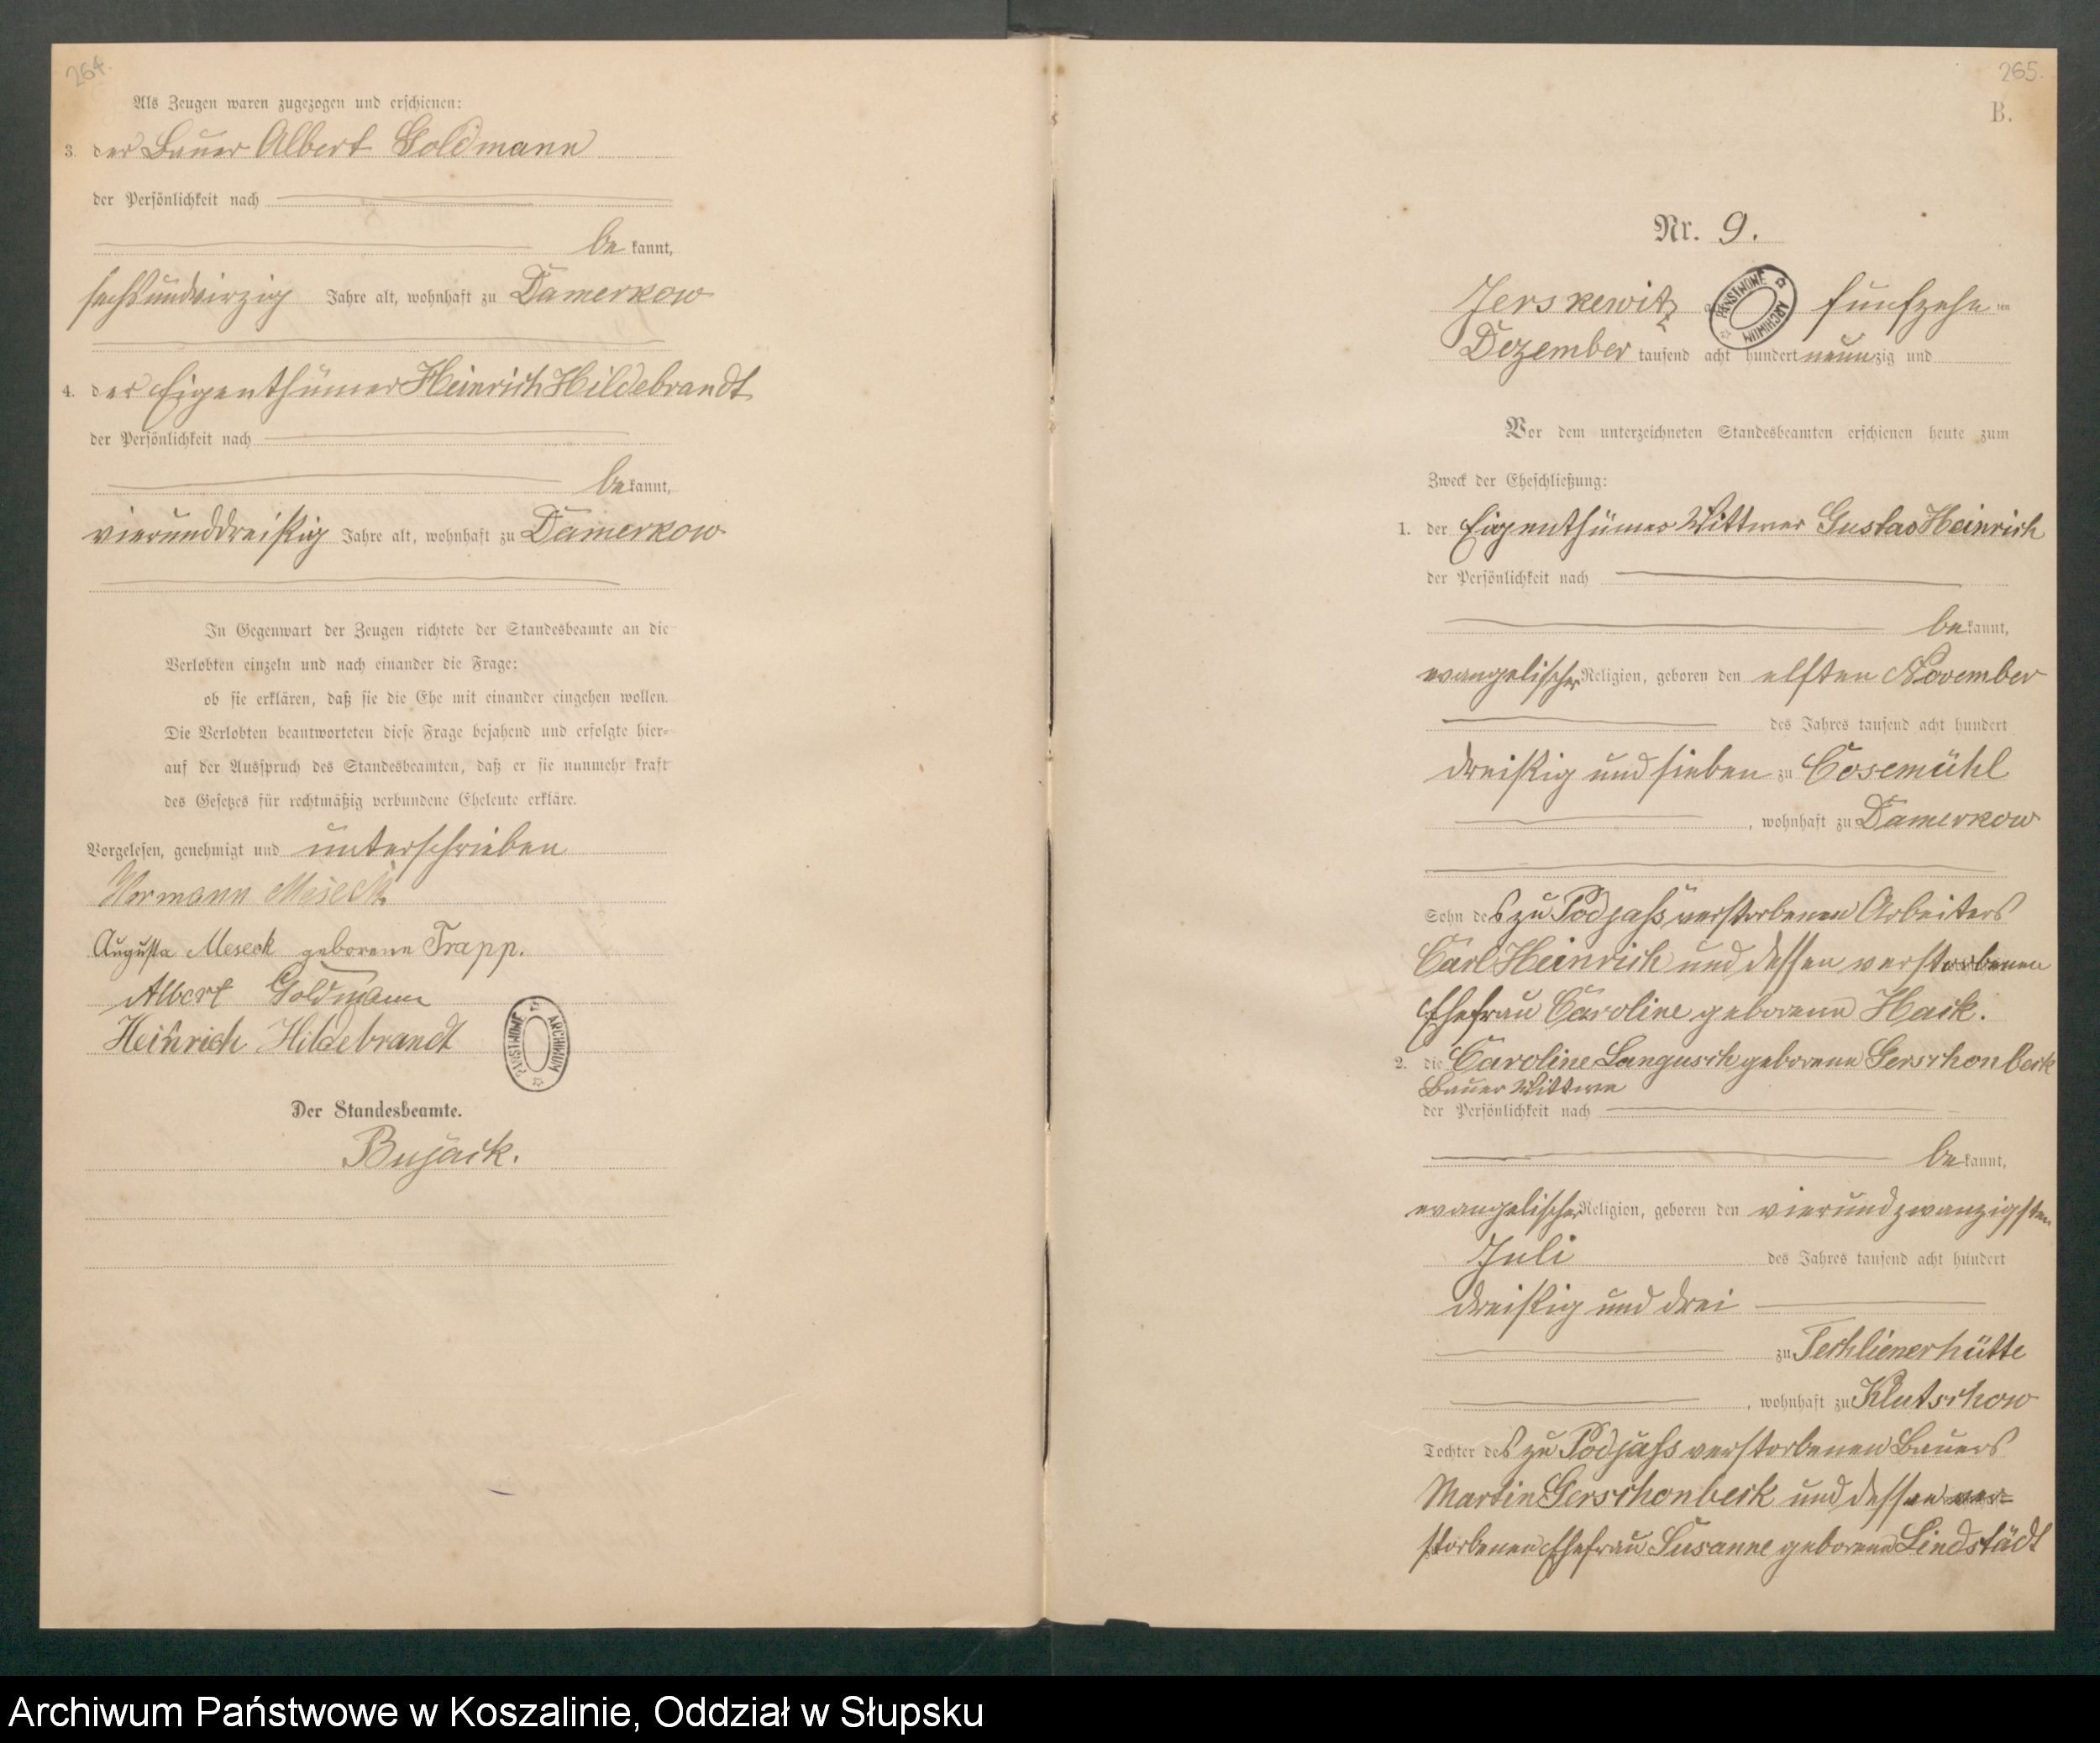 264.
Als Zeugen waren zugezogen und erschienen:
3. der Bauer Albert Goldmann
der Persönlichkeit nach
be kannt,
sechsundvirzig Jahre alt, wohnhaft zu Damerkow
4. der Eigenthümer Heinrich Hildebrandt
der Persönlichkeit nach
be kannt,
vierunddreißig Jahre alt, wohnhaft zu Damerkow
In Gegenwart der Zeugen richtete der Standesbeamte an die
Verlobten einzeln und nach einander die Frage:
ob sie erklären, daß sie die Ehe mit einander eingehen wollen.
Die Verlobten beantworteten diese Frage bejahend und erfolgte hier-
auf der Ausspruch des Standesbeamten, daß er sie nunmehr kraft
des Gesetzes für rechtmäßig verbundene Eheleute erkläre.
Vorgelesen, genehmigt und unterschrieben
Hermann Meseck
Augusta Meseck geborene Trapp.
Albert Goldmann
Heinrich Hildebrandt
PAŃSTWOWE ARCHIWUM
Der Standesbeamte.
Bujack.
265.
B.
Nr. 9.
Jerskewitz fünfzehn ten
PAŃSTWOWE ARCHIWUM
Dezember tausend acht hundert neunzig und
Vor dem unterzeichneten Standesbeamten erschienen heute zum
Zweck der Eheschließung:
1. der Eigenthümer Wittwer Gustav Heinrich
der Persönlichkeit nach
be kannt,
evangelischer Religion, geboren den elften November
des Jahres tausend acht hundert
dreißig und sieben zu Cosemühl
, wohnhaft zu Damerkow
Sohn des zu Podjass verstorbenen Arbeiters
Carl Heinrich und dessen verstorbenen
Ehefrau Caroline geborene Hack.
2. die Caroline Langusch geborene Gerschonbeck
Bauer Wittwe
der Persönlichkeit nach
be kannt,
evangelischer Religion, geboren den vierundzwanzigsten
Juli des Jahres tausend acht hundert
dreißig und drei
zu Teschlienerhütte
, wohnhaft zu Klutschow
Tochter des zu Podjass verstorbenen Bauers
Martin Gerschonbeck und dessen ver-
storbenen Ehefrau Susanne geborene Lindstädt
Archiwum Państwowe w Koszalinie, Oddział w Słupsku